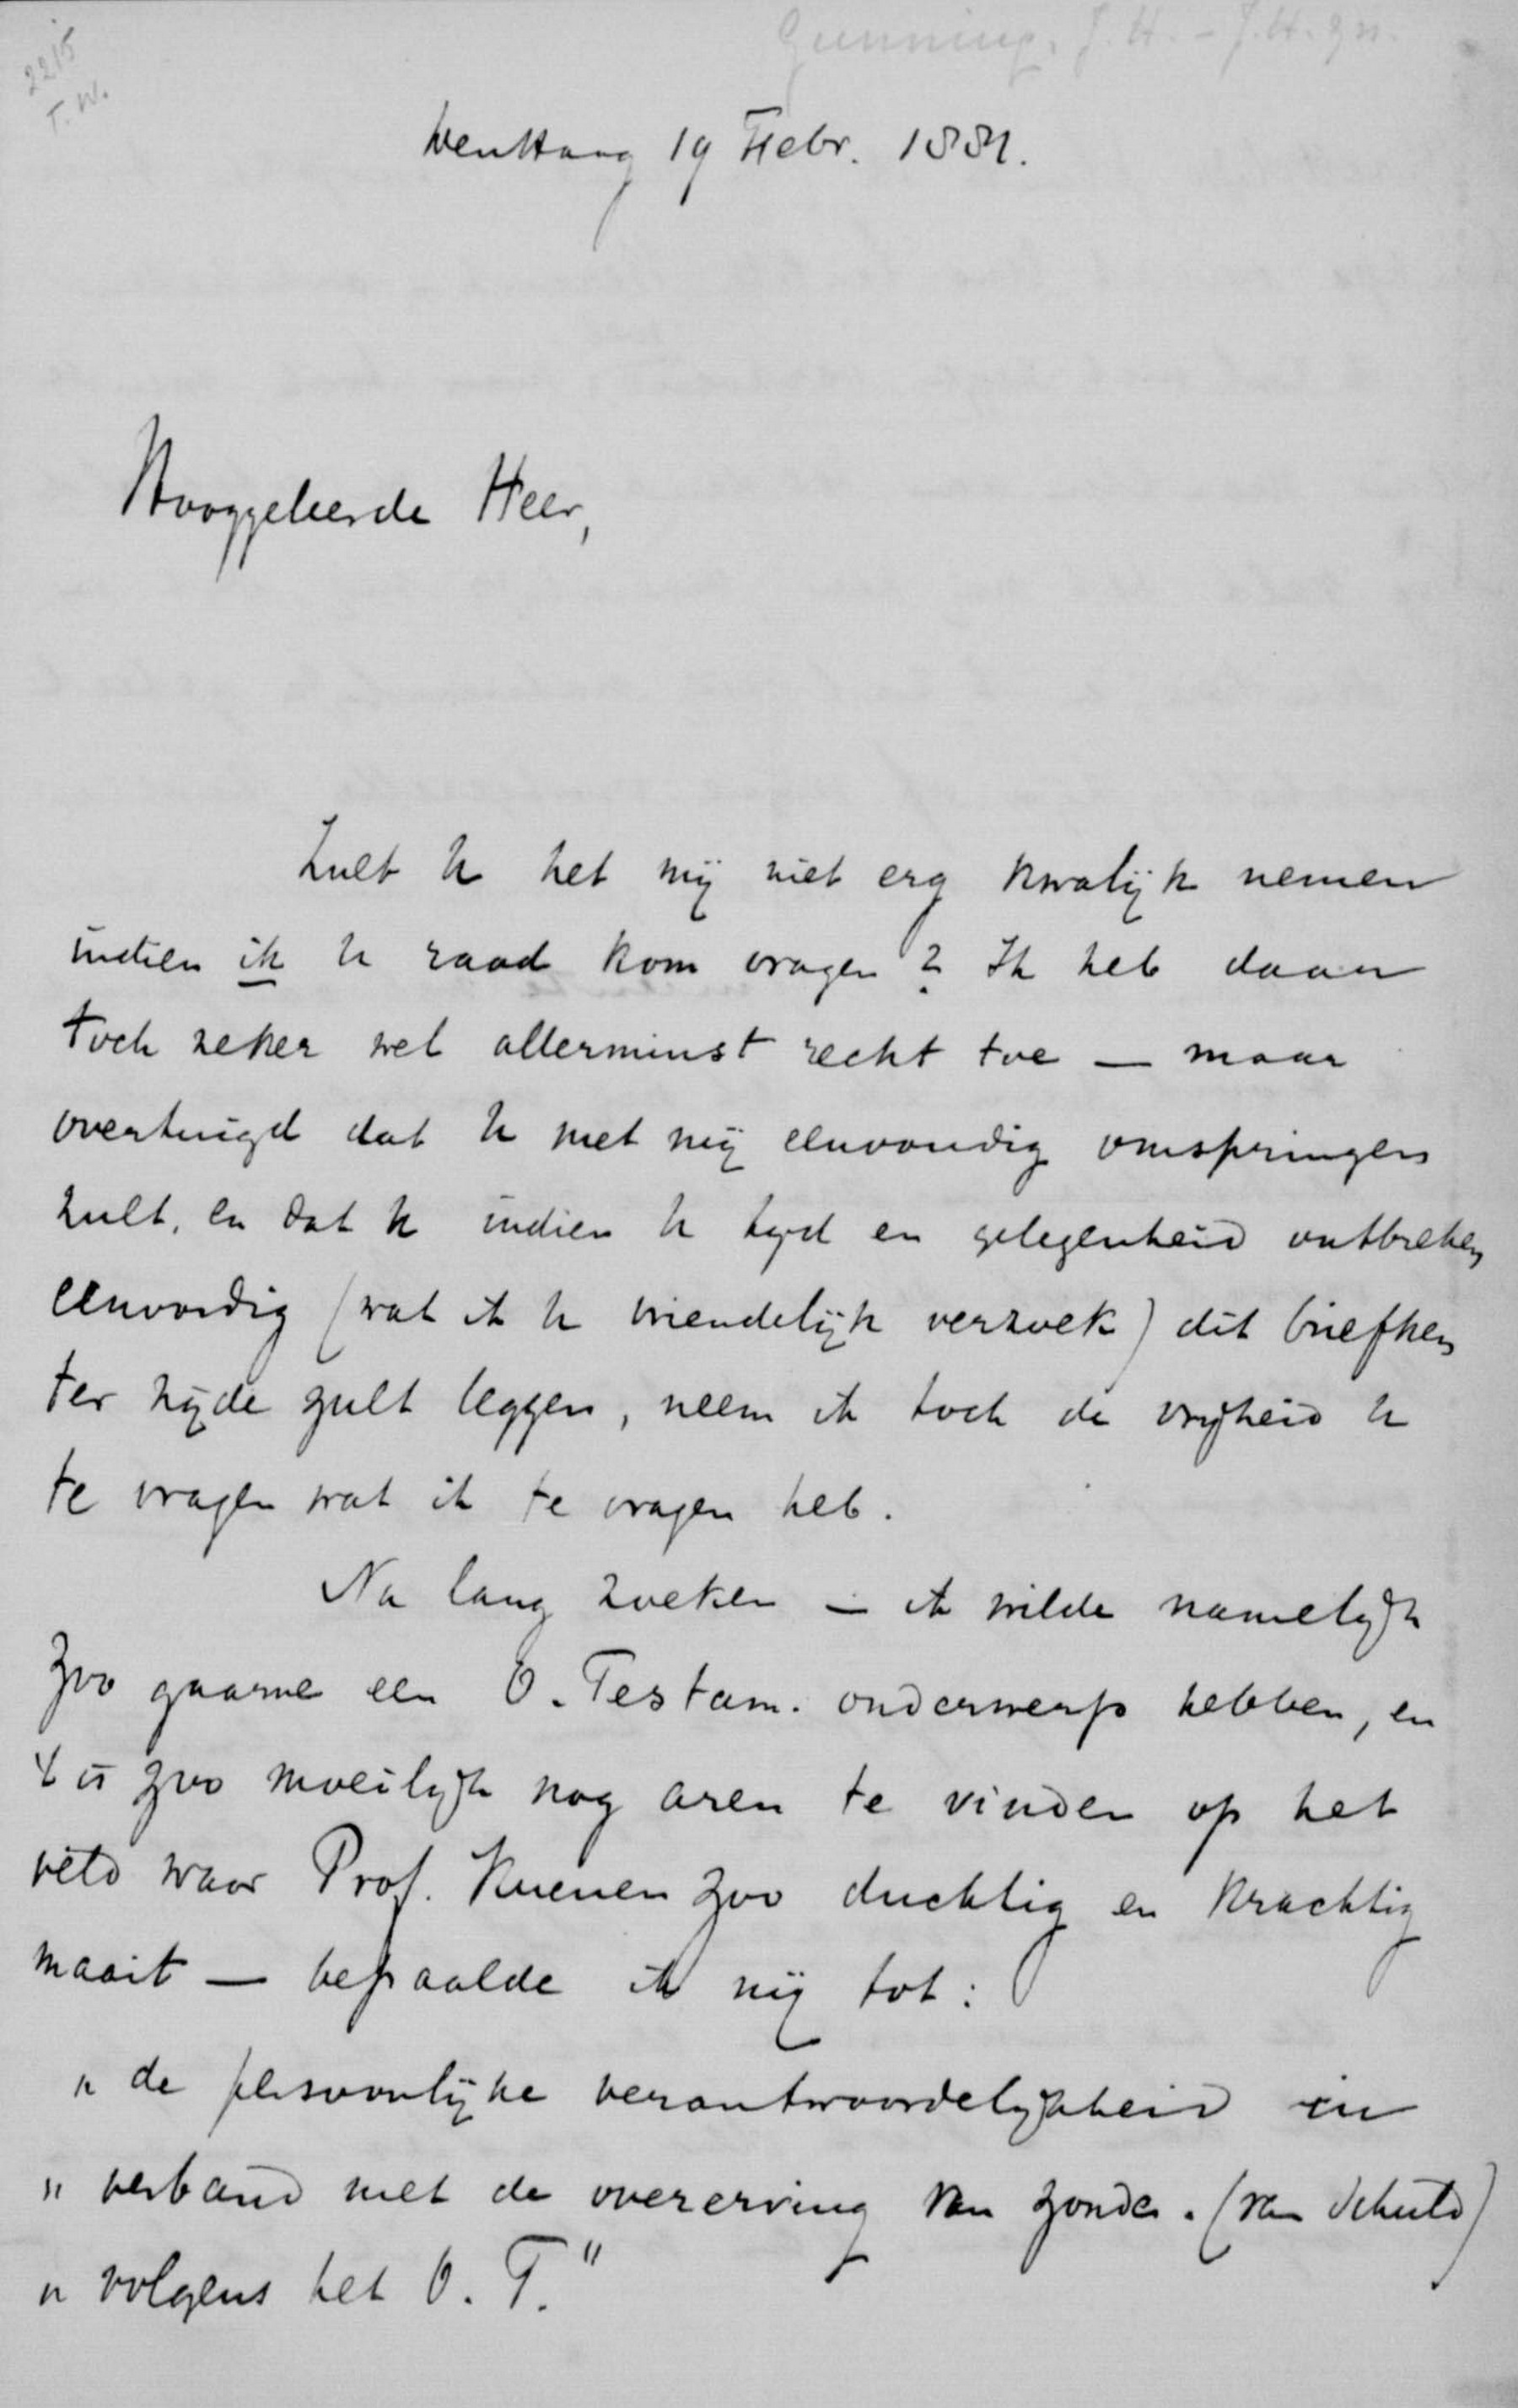 Gunning, J.H. - J.H.zn.
2215
T.W.
den Haag 19 Febr. 1881.
Hooggeleerde Heer,
Zult U het mij niet erg kwalijk nemen
indien ik U raad kom vragen? Ik heb daar
toch zeker wel allerminst recht toe — maar
overtuigd dat U met mij eenvoudig omspringen
zult, en dat U indien U tijd en gelegenheid ontbreken
eenvoudig (wat ik U vriendelijk verzoek) dit briefken
ter zijde zult leggen, neem ik toch de vrijheid U
te vragen wat ik te vragen heb.
Na lang zoeken — ik wilde namelijk
zoo gaarne een O. Testam. onderwerp hebben, en
't is zoo moeilijk nog aren te vinden op het
veld waar Prof. Kuenen zoo duchtig en krachtig
maait — bepaalde ik mij tot:
" de persoonlijke verantwoordelijkheid in
" verband met de overerving van zonde. (van schuld)
" volgens het O. T."